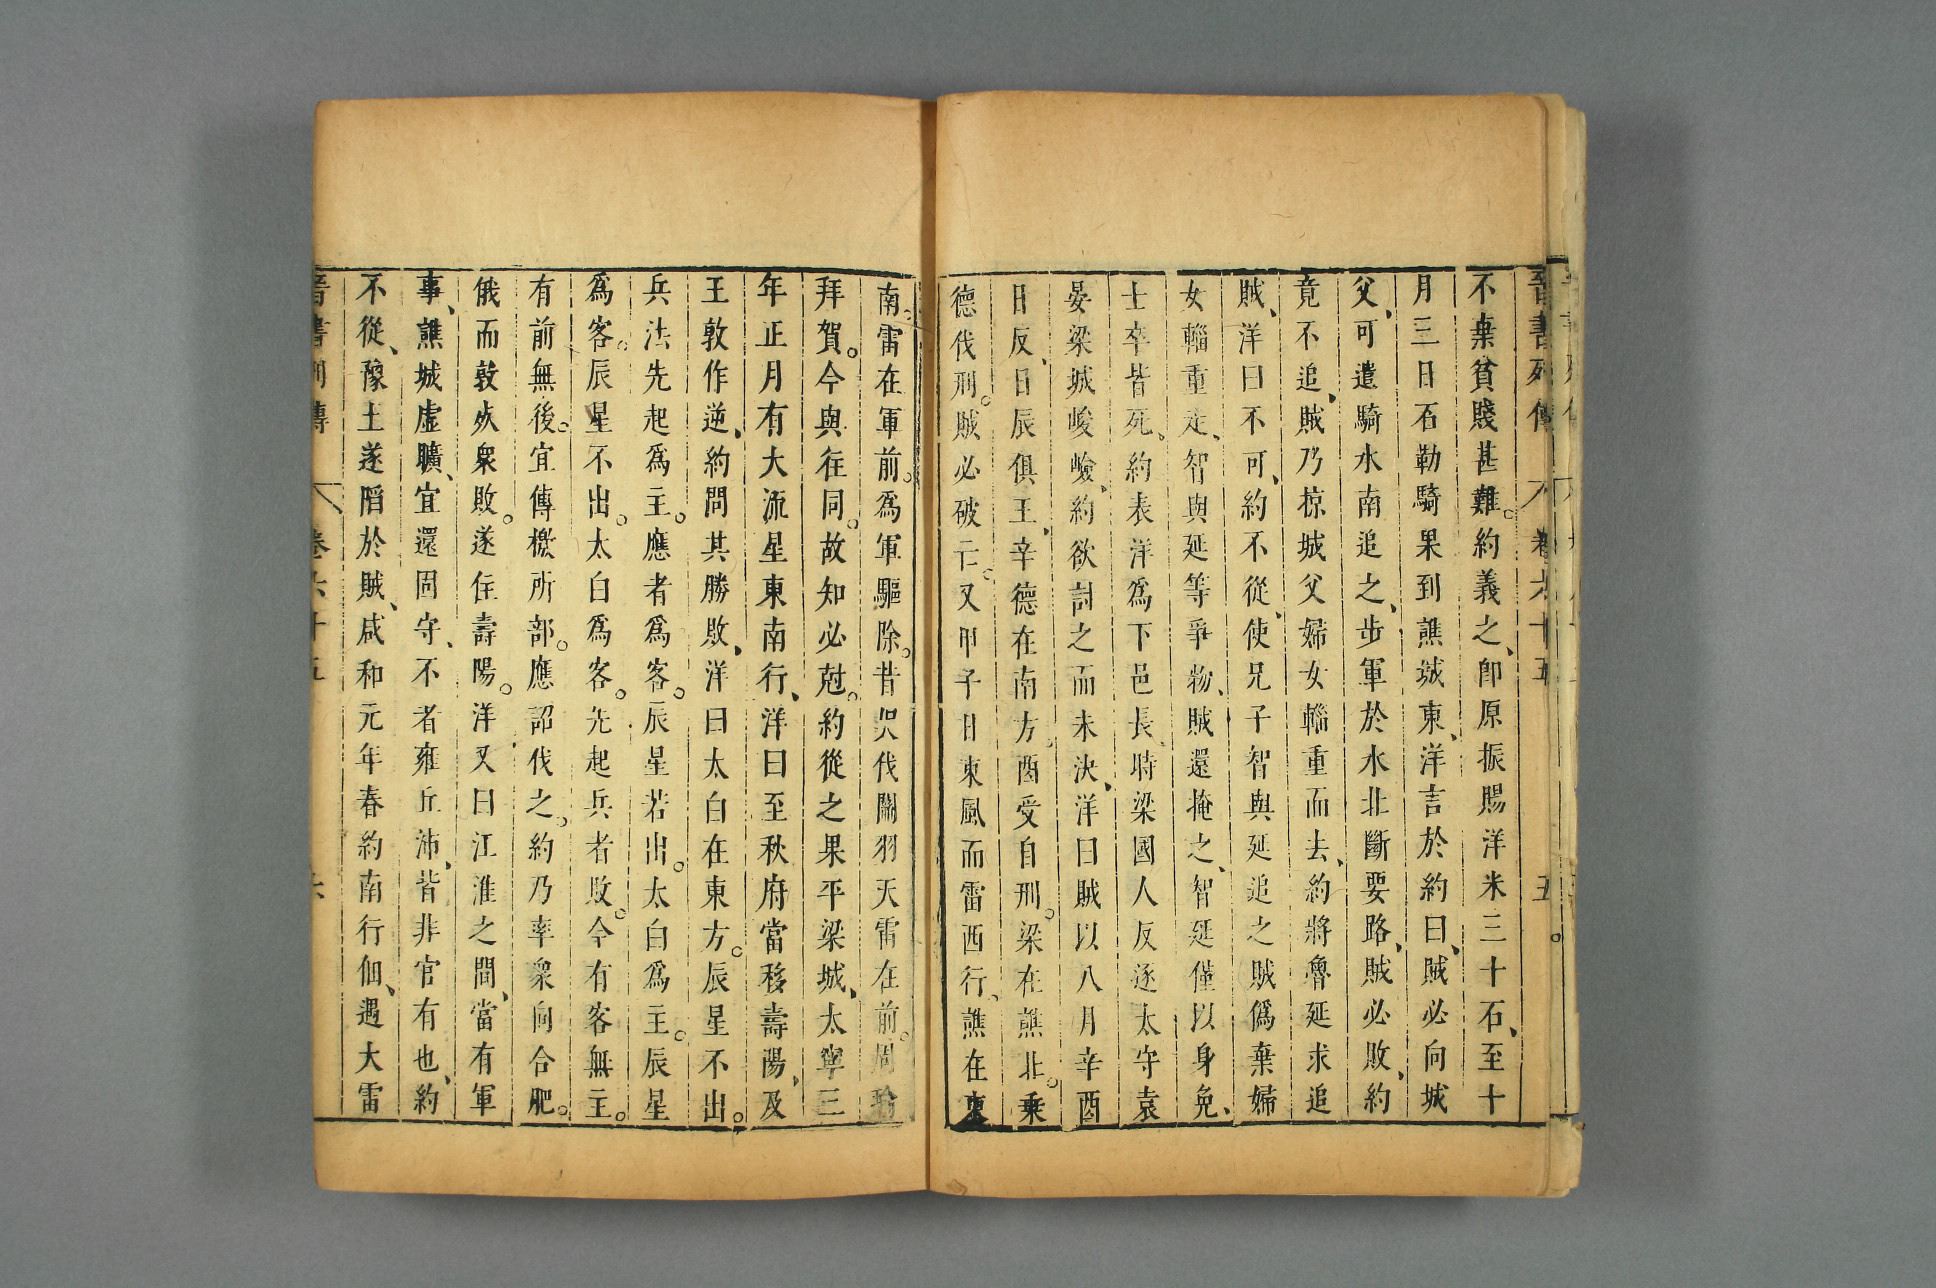 晉書列傳 卷六十五 五
不棄貧賤甚難。約義之、卽原振賜洋米三十石、至十
月三日石勒騎果到譙城東、洋言於約曰、賊必向城
父、可遣騎水南追之、步軍於水北斷要路、賊必敗、約
竟不追、賊乃掠城父婦女輜重而去、約將魯延求追
賊、洋曰不可、約不從、使兄子智與延追之賊僞棄婦
女輜重走、智與延等爭物、賊還掩之、智延僅以身免、
士卒皆死。約表洋爲下邑長、時梁國人反逐太守袁
晏梁城峻嶮、約欲討之而未決、洋曰賊以八月辛酉
日反、日辰俱王、辛德在南方。酉受自刑。梁在譙北。乗
德伐刑。賊必破亡。又甲子日東風而雷西行、譙在東
南雷在軍前。爲軍驅除。昔吳伐關羽天雷在前。周瑜
拜賀。今與往同。故知必尅。約從之果平梁城、太寧三
年正月有大流星東南行、洋曰至秋府當移壽陽、及
王敦作逆、約問其勝敗、洋曰太白在東方。辰星不出。
兵法先起爲主。應者爲客。辰星若出。太白爲主。辰星
爲客。辰星不出。太白爲客。先起兵者敗。今有客無主。
有前無後。宜傳檄所部。應詔伐之。約乃率衆向合肥。
俄而敦死衆敗。遂住壽陽。洋又曰江淮之間、當有軍
事、譙城虛曠、宜還固守、不者雍丘沛、皆非官有也、約
不從、豫土遂陷於賊、咸和元年春約南行佃、遇大雷
晉書列傳 卷六十五 六